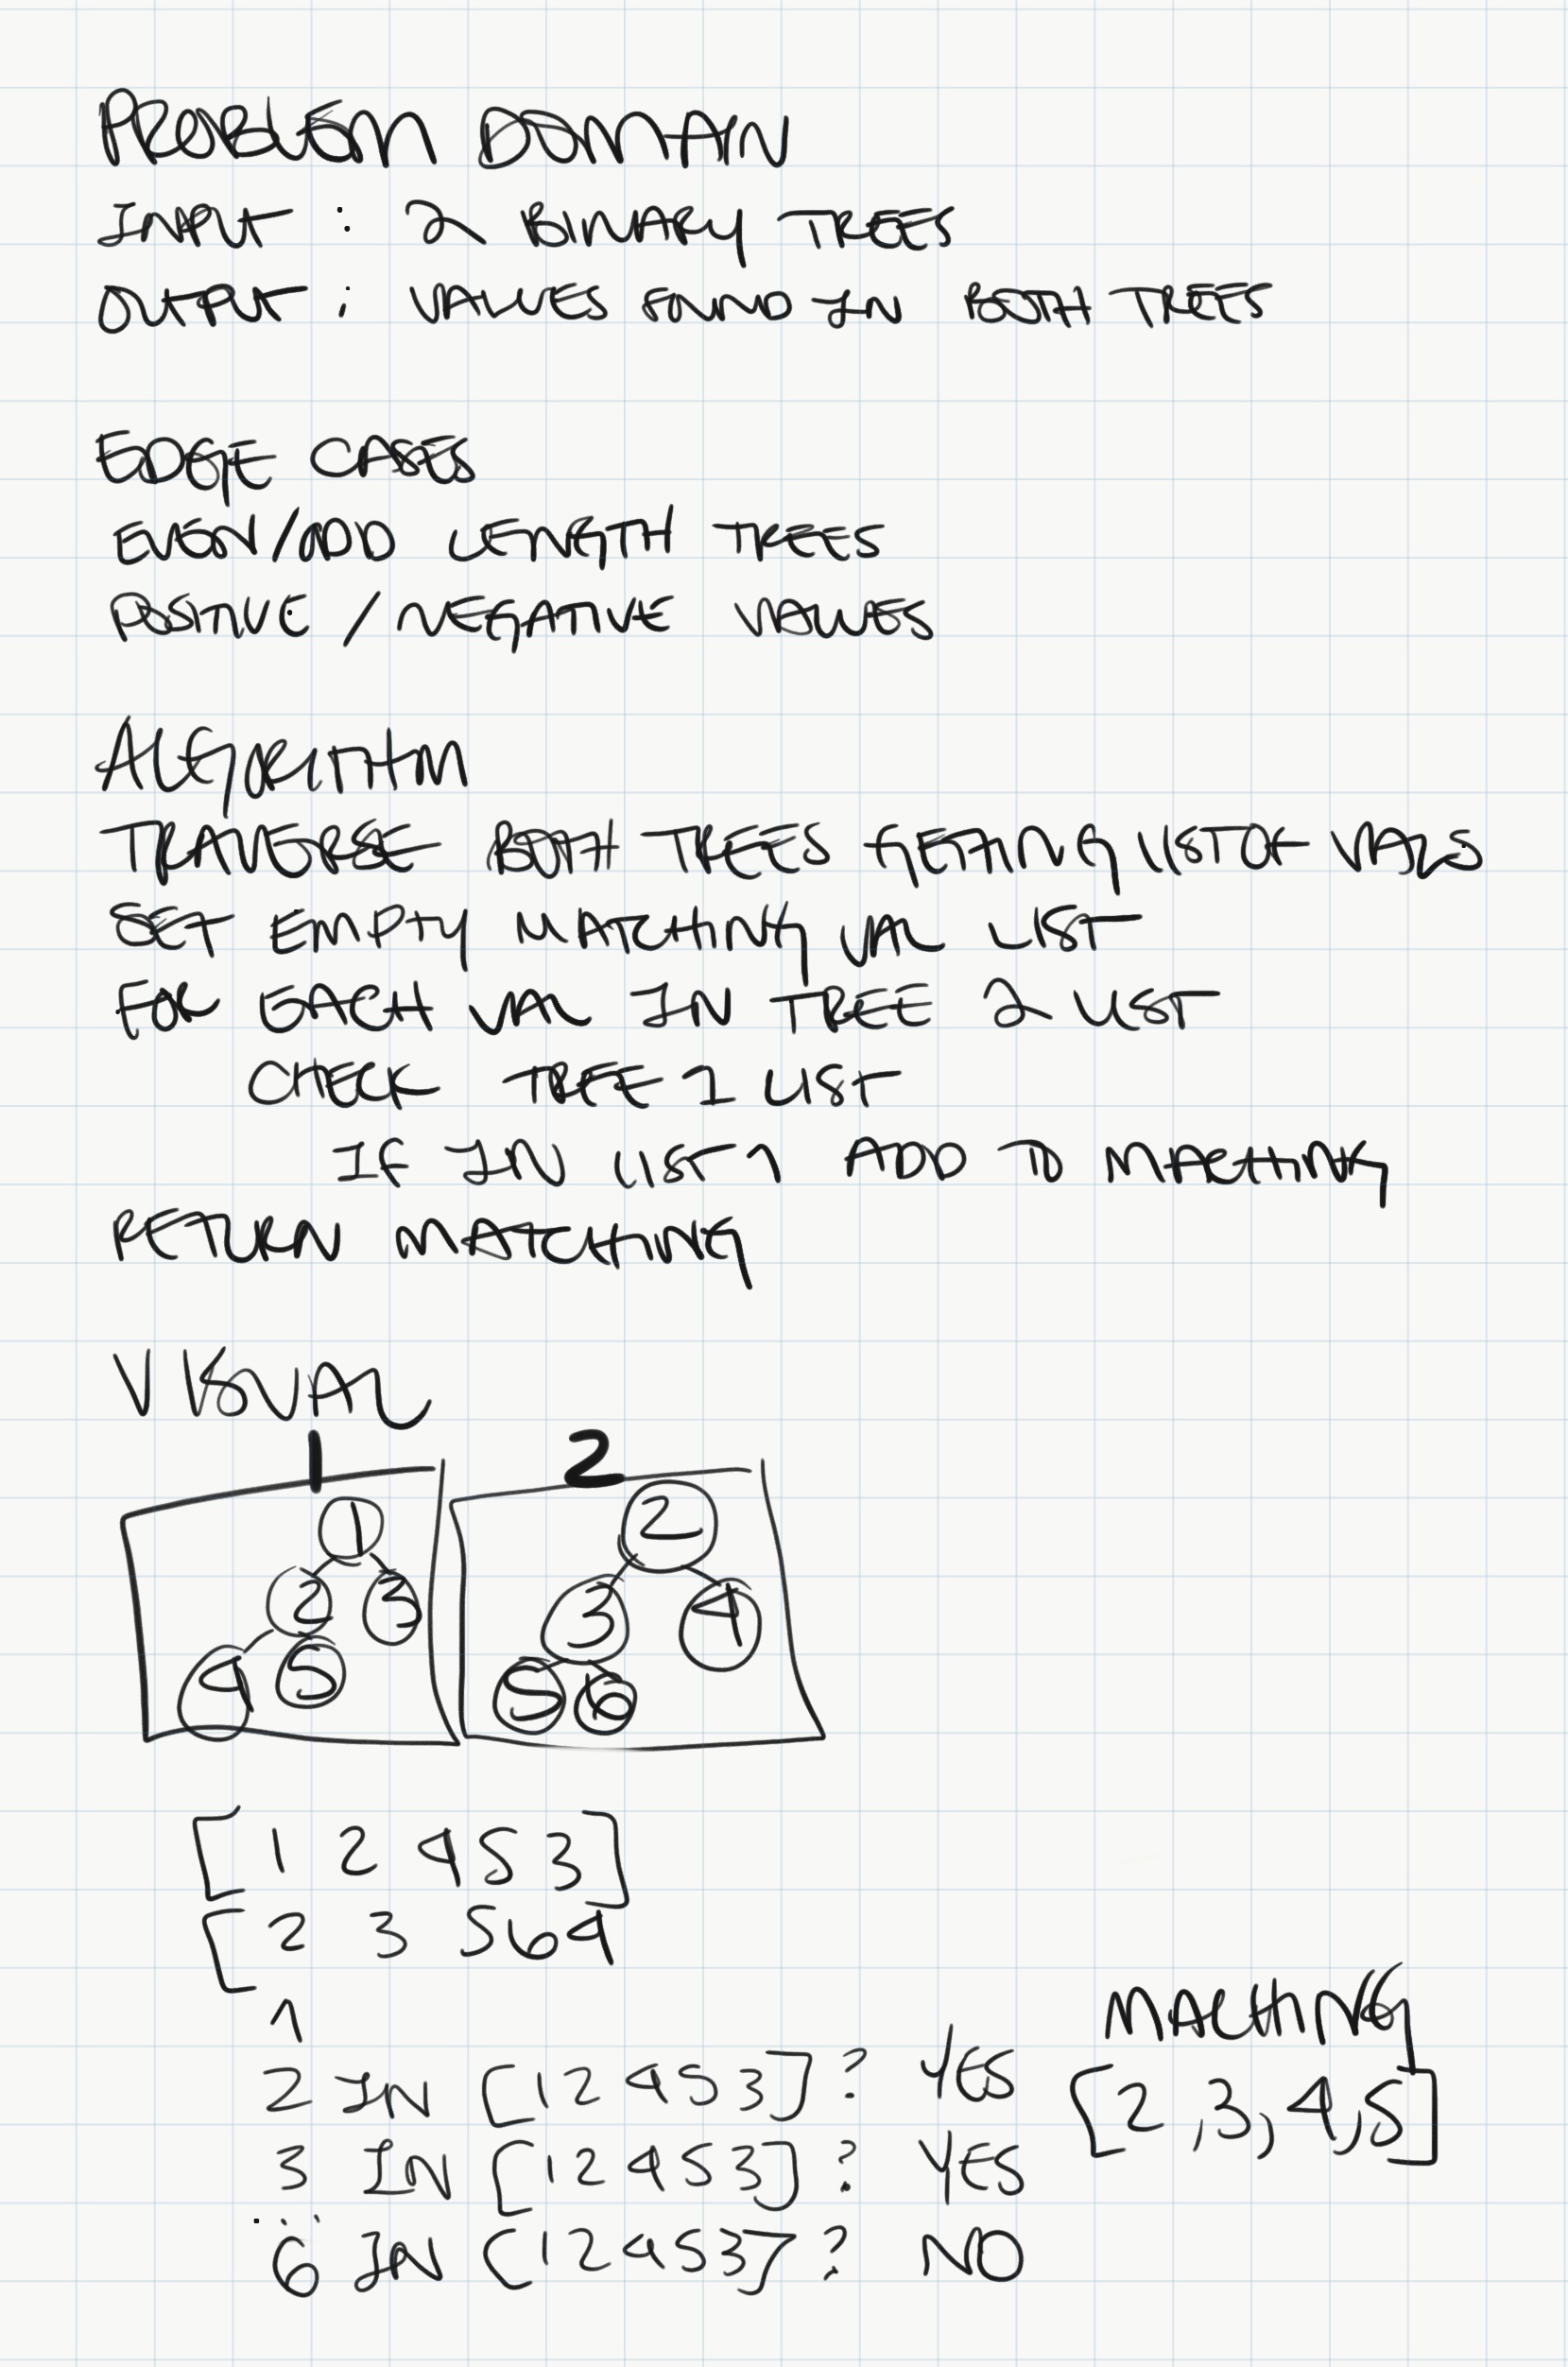 PROBLEM DOMAIN
INPUT : 2 BINARY TREES
OUTPUT : VALUES FOUND IN BOTH TREES
EDGE CASES
EVEN/ODD LENGTH TREES
POSITIVE / NEGATIVE VALUES
ALGORITHM
TRAVERSE BOTH TREES GETTING LIST OF VALS
SET EMPTY MATCHING VAL LIST
FOR EACH VAL IN TREE 2 LIST
CHECK TREE 1 LIST
IF IN LIST 1 ADD TO MATCHING
RETURN MATCHING
VISUAL
1 2
1 2
2 3 3 4
4 5 5 6
[1 2 4 5 3]
[2 3 5 6 4
^
MATCHING
2 IN [1 2 4 5 3]? YES
[2,3,4,5]
3 IN [1 2 4 5 3]? YES
...
6 IN [1 2 4 5 3]? NO